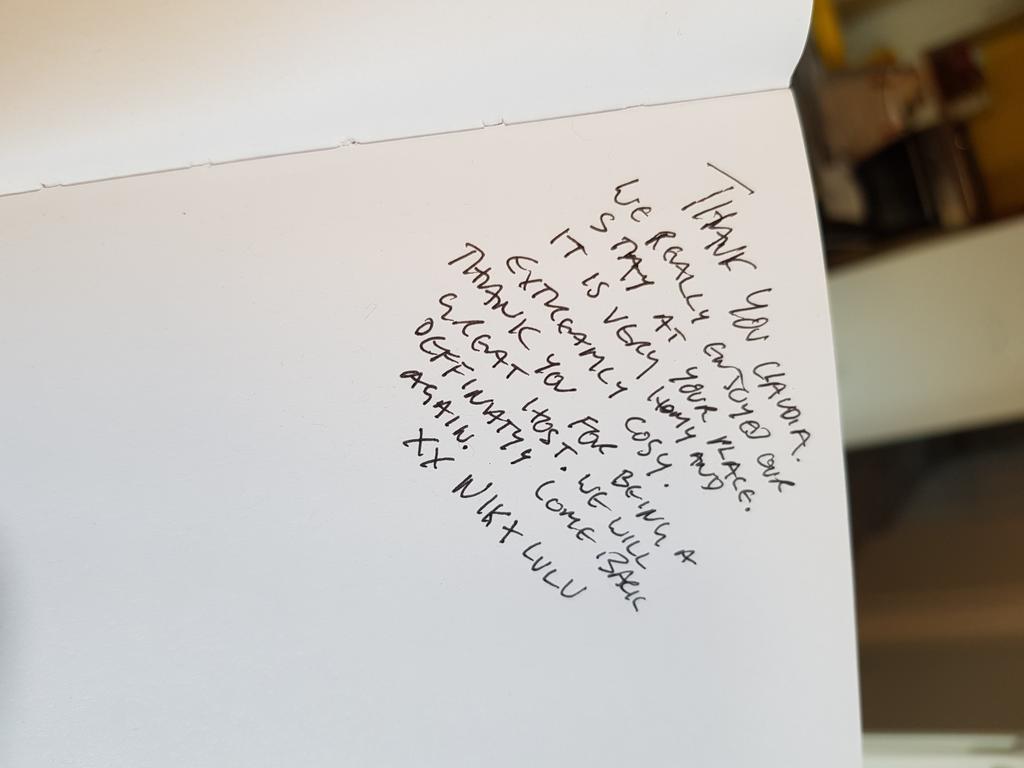 THANK YOU CLAUDIA.
WE REALLY ENJOYED OUR
STAY AT YOUR PLACE.
IT IS VERY HOMY AND
EXTREAMLY COSY.
THANK YOU FOR BEING A
GREAT HOST. WE WILL
DEFFINATYY COME BACK
AGAIN.
XX NIK + LULU